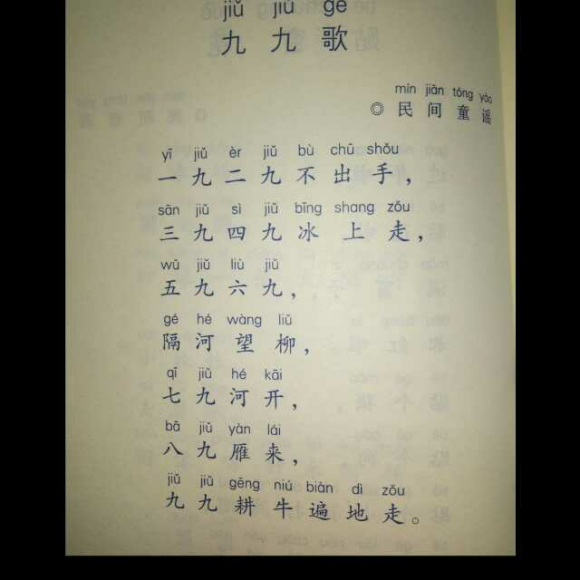 jiǔ jiǔ gē
九九歌
mín jiān tóng yáo
◎民间童谣
yī jiǔ èr jiǔ bù chū shǒu
一九二九不出手，
sān jiǔ sì jiǔ bīng shang zǒu
三九四九冰上走，
wǔ jiǔ liù jiǔ
五九六九，
gé hé wàng liǔ
隔河望柳，
qī jiǔ hé kāi
七九河开，
bā jiǔ yàn lái
八九雁来，
jiǔ jiǔ gēng niú biàn dì zǒu
九九耕牛遍地走。